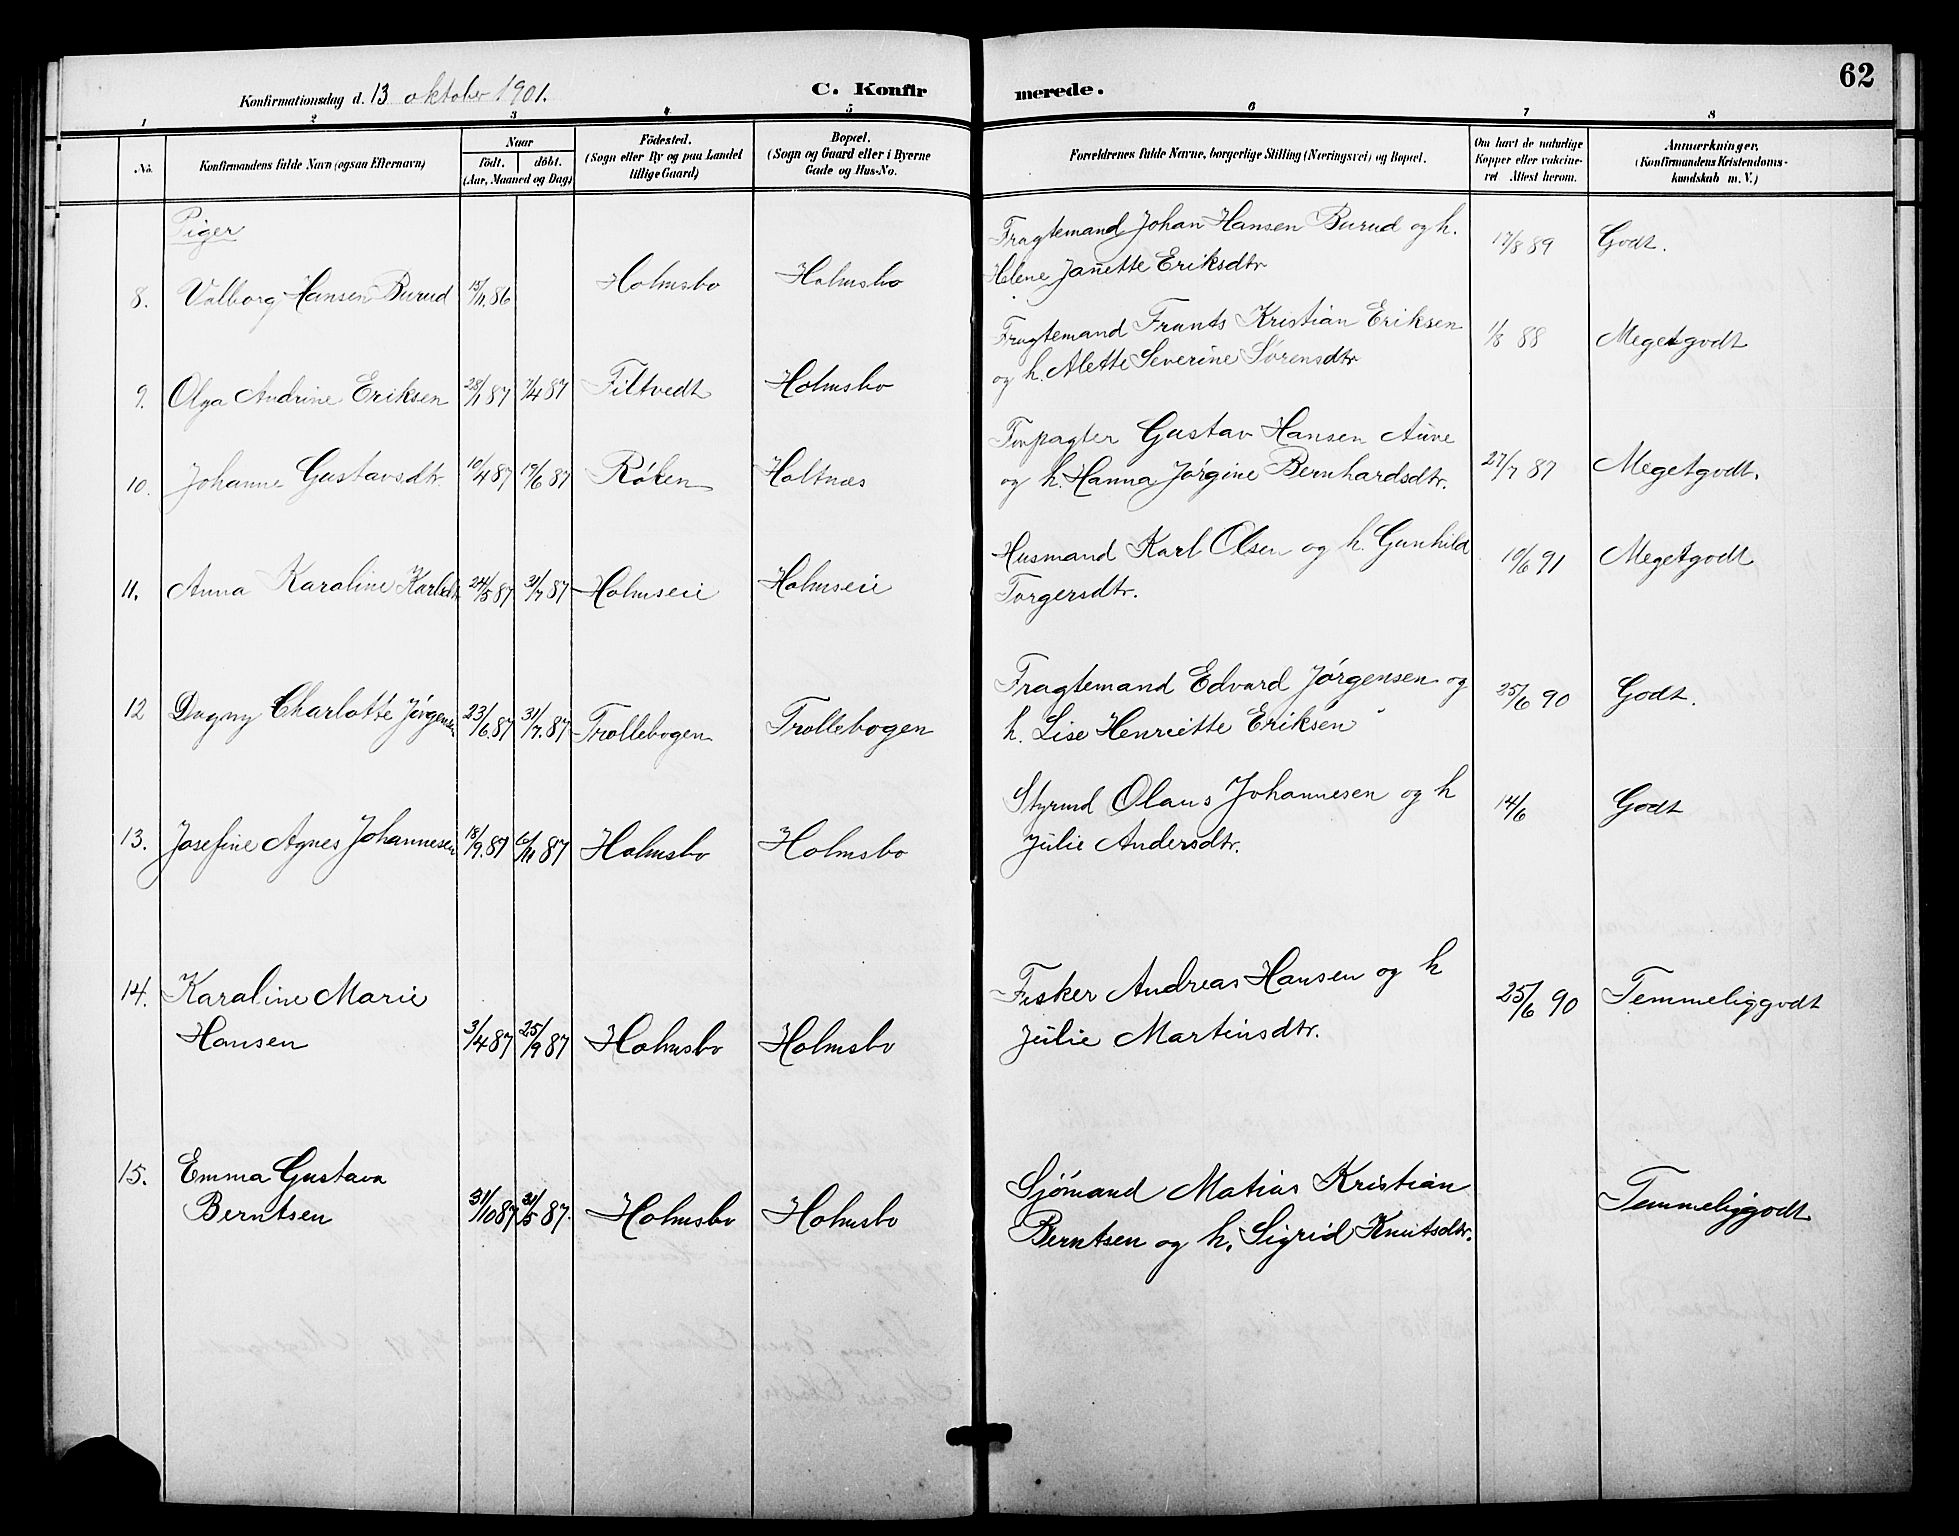 62
Konfirmationsdag d. 13 oktober 1901.
C. Konfirmerede.
1 2 3 4 5 6 7 8
No.
Konfirmandens fulde Navn (ogsaa Efternavn)
Naar
födt. döbt.
(Aar, Maaned og Dag)
Födested.
(Sogn eller By og paa Landet
tillige Gaard)
Bopæl.
(Sogn og Gaard eller i Byerne
Gade og Hus-No.
Forældrenes fulde Navne, borgerlige Stilling (Næringsvei) og Bopæl.
Om havt de naturlige
Kopper eller vakcine-
ret Attest herom.
Anmærkninger,
(Konfirmandens Kristendoms-
kundskab m. V.)
Piger
Fragtemand Johan Hansen Burud og h. 17/8 89 Godt.
Helene Janette Eriksdtr
8. Valborg Hansen Burud 15/11 86 Holmsbo Holmsbo
Fragtemand Frants Kristian Eriksen 1/8 88 Megetgodt
og h. Alette Severine Sørensdtr
9. Olga Andrine Eriksen 28/1 87 7/4 87 Filtvedt Holmsbo
Forpagter Gustav Hansen Aune
10. Johanne Gustavsdtr. 10/4 87 19/6 87 Røken Holtnæs og h. Hanna Jørgine Bernhardsdtr. 27/7 87 Megetgodt.
Husmand Karl Olsen og h. Gunhild 10/6 91 Megetgodt
11. Anna Karaline Karlsdtr 24/5 87 31/7 87 Holmseie Holmseie Torgersdtr.
Fragtemand Edvard Jørgensen og 25/6 90 Godt.
12 Dagny Charlotte Jørgensen 23/6.87 31/7.87 Trollebogen Trollebogen h. Lise Henriette Eriksen
Styrmd Olaus Johannesen og h 14/6 Godt
13. Josefine Agnes Johannesen 18/9.87 6/11 87 Holmsbo Holmsbo Julie Andersdtr.
14. Karaline Marie Fisker Andreas Hansen og h 25/6 90 Temmeliggodt
Hansen 3/4 87 25/9 87 Holmsbo Holmsbo Julie Martinsdtr.
15. Emma Gustava Sjømand Matias Kristian Temmeliggodt
Berntsen 31/10 87 31/5 87. Holmsbo Holmsbo Berntsen og h. Sigrid Knutsdtr.